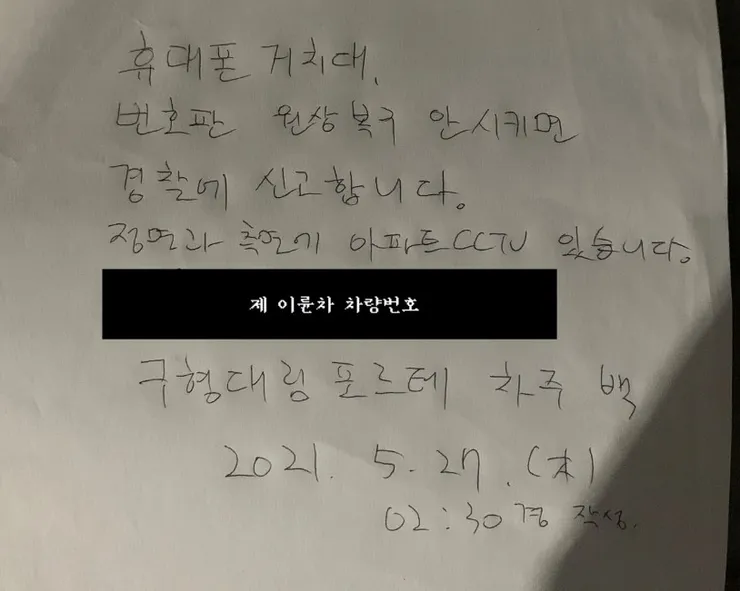 휴대폰 거치대,
번호판 원상복구 안시키면
경찰에 신고합니다.
정면과 측면에 아파트CCTV 있습니다.
제 이륜차 차량번호
구형대림 포르테 차주 백
2021. 5. 27. (木)
02:30경 작성.